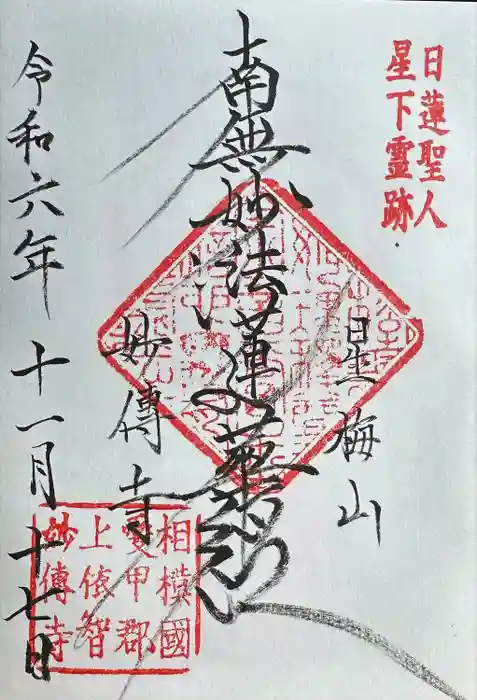 日蓮聖人
星下霊跡
星梅山
南無妙法蓮華経
妙傳寺
令和六年十一月十七日
相模國
愛甲郡
上依智
妙傳寺